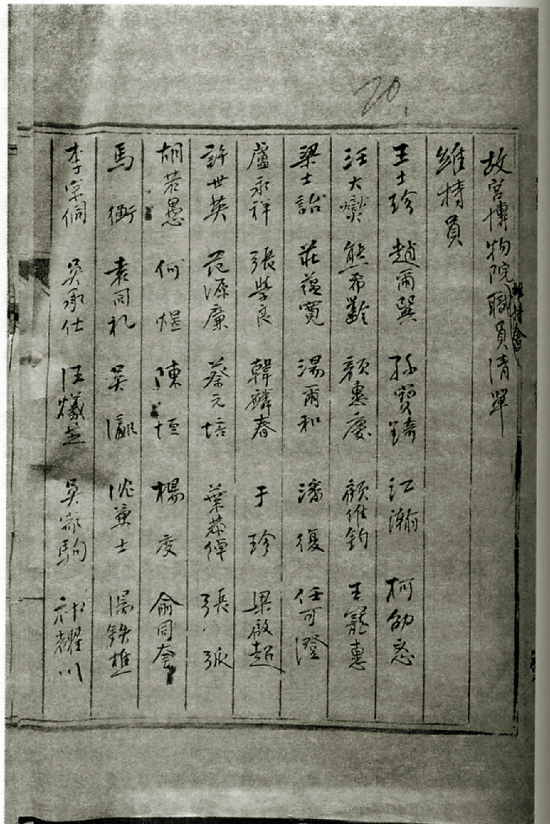 20
故宮博物院維持會職員清單
維持員
王士珍 趙爾巽 孫寶錡 江瀚 柯劭忞
汪大燮 熊希齡 顏惠慶 顧維鈞 王寵惠
梁士詒 莊蘊寬 湯爾和 潘復 任可澄
盧永祥 張學良 韓麟春 于珍 梁啟超
許世英 范源廉 蔡元培 葉恭綽 張
胡若愚 何煜 陳垣 楊度 俞同奎
馬衡 袁同礼 吳瀛 沈兼士 湯鉄樵
李宗侗 吳承仕 江燨芝 吳家駒 耀川